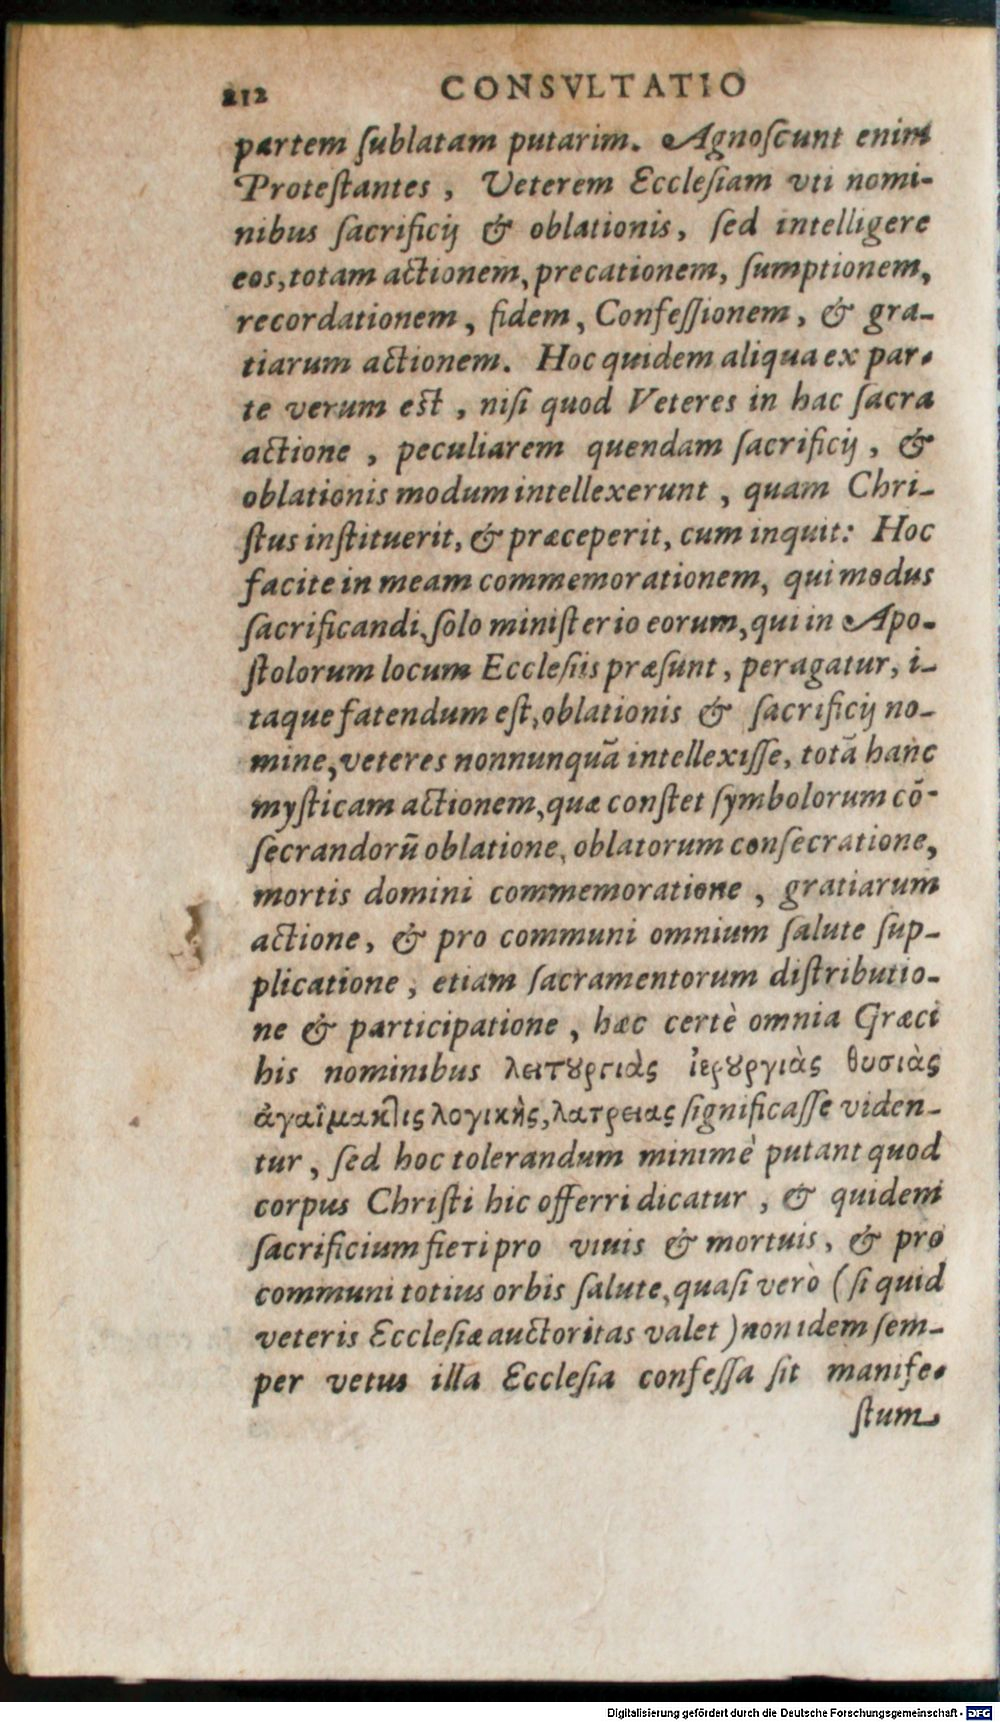 212 CONSVLTATIO
partem ſublatam putarim. Agnoſcunt enim
Proteſtantes , Veterem Eccleſiam vti nomi-
nibus ſacrificij & oblationis, ſed intelligere
eos, totam actionem, precationem, ſumptionem,
recordationem , fidem , Confeſſionem , & gra-
tiarum actionem. Hoc quidem aliqua ex par-
te verum eſt , niſi quod Veteres in hac ſacra
actione , peculiarem quendam ſacrificij , &
oblationis modum intellexerunt , quam Chri-
ſtus inſtituerit, & præceperit, cum inquit: Hoc
facite in meam commemorationem, qui modus
ſacrificandi, ſolo miniſterio eorum, qui in Apo-
ſtolorum locum Eccleſiis præſunt , peragatur, i-
taque fatendum eſt, oblationis & ſacrificij no-
mine, veteres nonnunquã intellexiſſe, totã hanc
myſticam actionem, quæ conſtet ſymbolorum cõ-
ſecrandorũ oblatione, oblatorum conſecratione,
mortis domini commemoratione , gratiarum
actione, & pro communi omnium ſalute ſup-
plicatione , etiam ſacramentorum diſtributio-
ne & participatione , hæc certè omnia Græci
his nominibus λειτȣργιὰς ἱερȣργιὰς θυσιὰς
λογικὴς, λατρειας ſignificaſſe viden-
tur , ſed hoc tolerandum minimè putant quod
corpus Chriſti hic offerri dicatur , & quidem
ſacrificium fieri pro viuis & mortuis, & pro
communi totius orbis ſalute, quaſi verò (ſi quid
veteris Eccleſiæ auctoritas valet ) non idem ſem-
per vetus illa Eccleſia confeſſa ſit manife-
ſtum
Digitalisierung gefördert durch die Deutsche Forschungsgemeinschaft - DFG